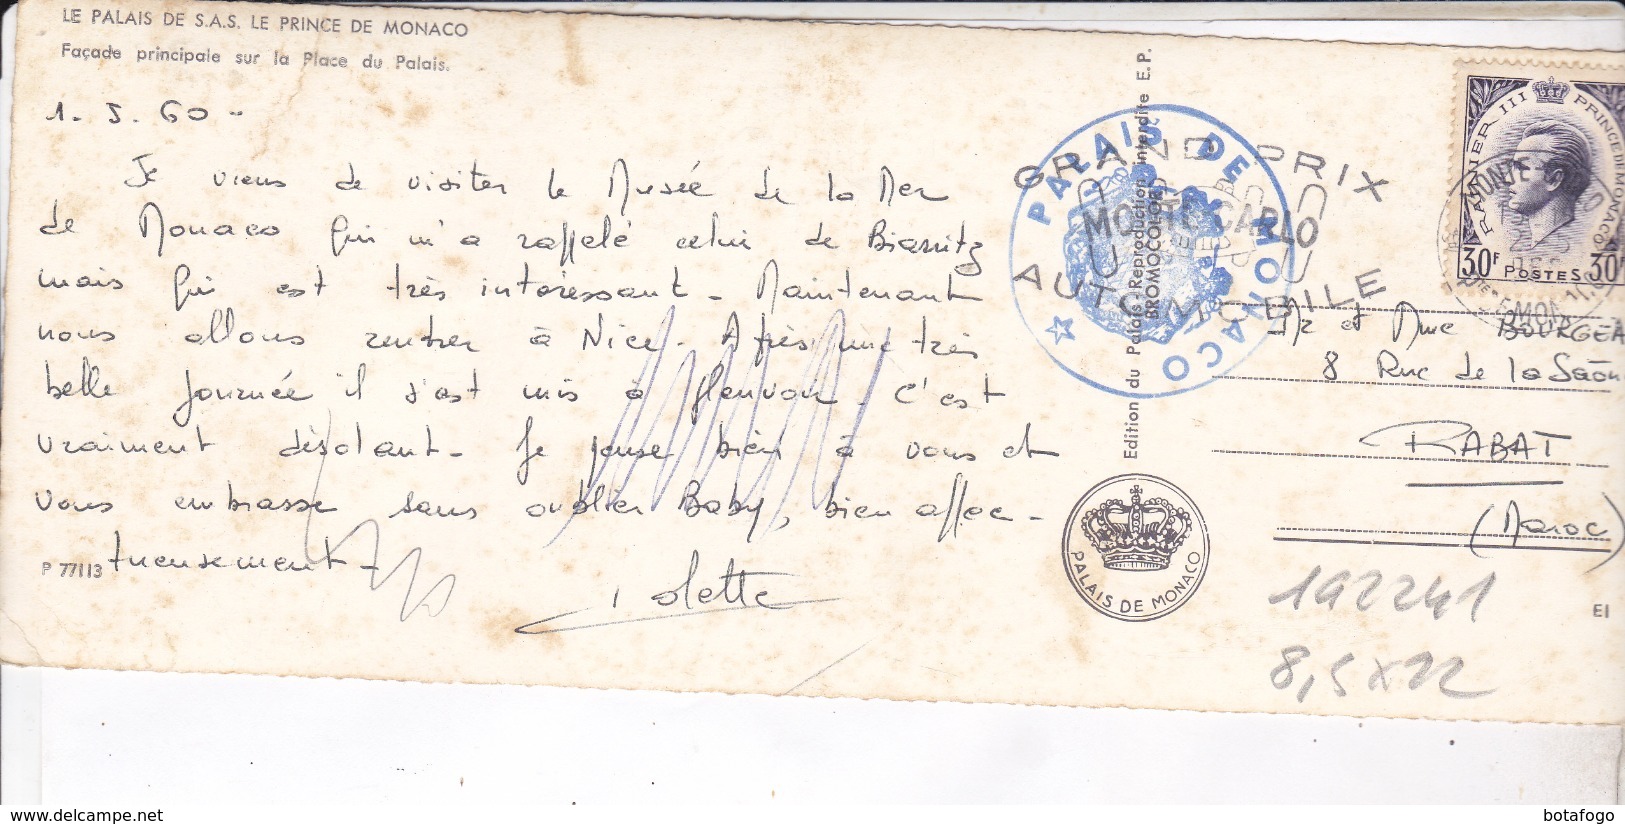 LE PALAIS DE S.A.S. LE PRINCE DE MONACO
Façade principale sur la Place du Palais.
1. 5. 60 -
Je viens de visiter le Musée de la Mer
de Monaco qui m'a rappelé celui de Biarritz
mais qui est très intéressant - Maintenant
nous allons rentrer à Nice. Après une très
belle journée il s'est mis à pleuvoir. C'est
vraiment désolant - Je pense bien à vous et
vous embrasse sans oublier Baby, bien affec-
tueusement -
Colette
P 77113
Edition du Palais-Reproduction interdite E. P.
BROMOCOLOR
PALAIS DE MONACO
GRAND PRIX
MONTE CARLO
AUTOMOBILE
RAINIER III PRINCE DE MONACO
30F POSTES 30F
MONTE-CARLO
Mr et Mme BOURGEA
8 Rue de la Saôn
RABAT
(Maroc)
PALAIS DE MONACO
192241
8,5 x 22
EI
botafogo